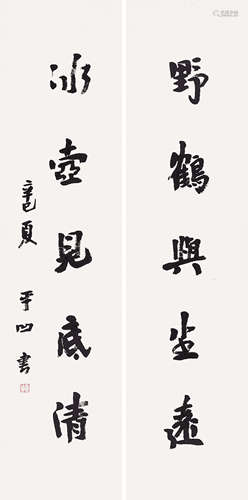 野鶴與尘遠
冰壺見底清
辛巳夏 平凹書